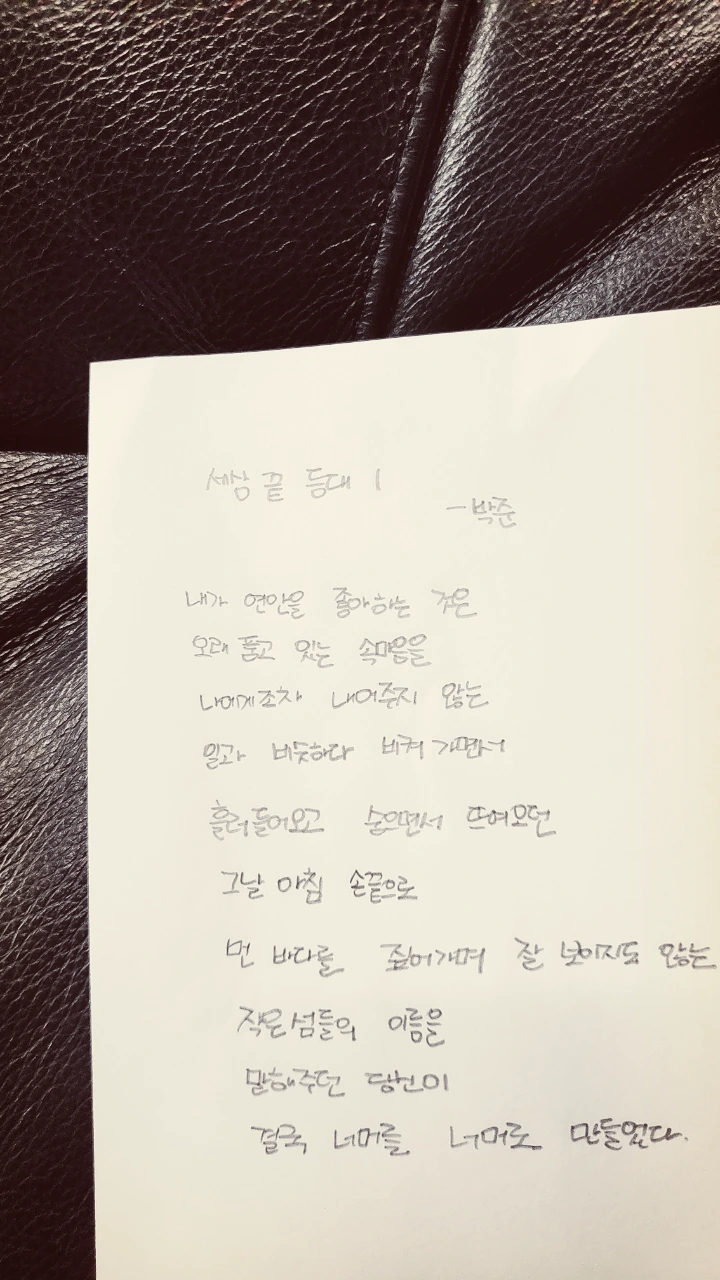 세상 끝 등대 1
- 박준
내가 연안을 좋아하는 것은
오래 품고 있는 속마음을
나에게조차 내어주지 않는
일과 비슷하다 비켜가면서
흘러들어오고 숨으면서 뜨여오던
그날 아침 손끝으로
먼 바다를 짚어가며 잘 보이지도 않는
작은 섬들의 이름을
말해주던 당신이
결국 너머를 너머로 만들었다.